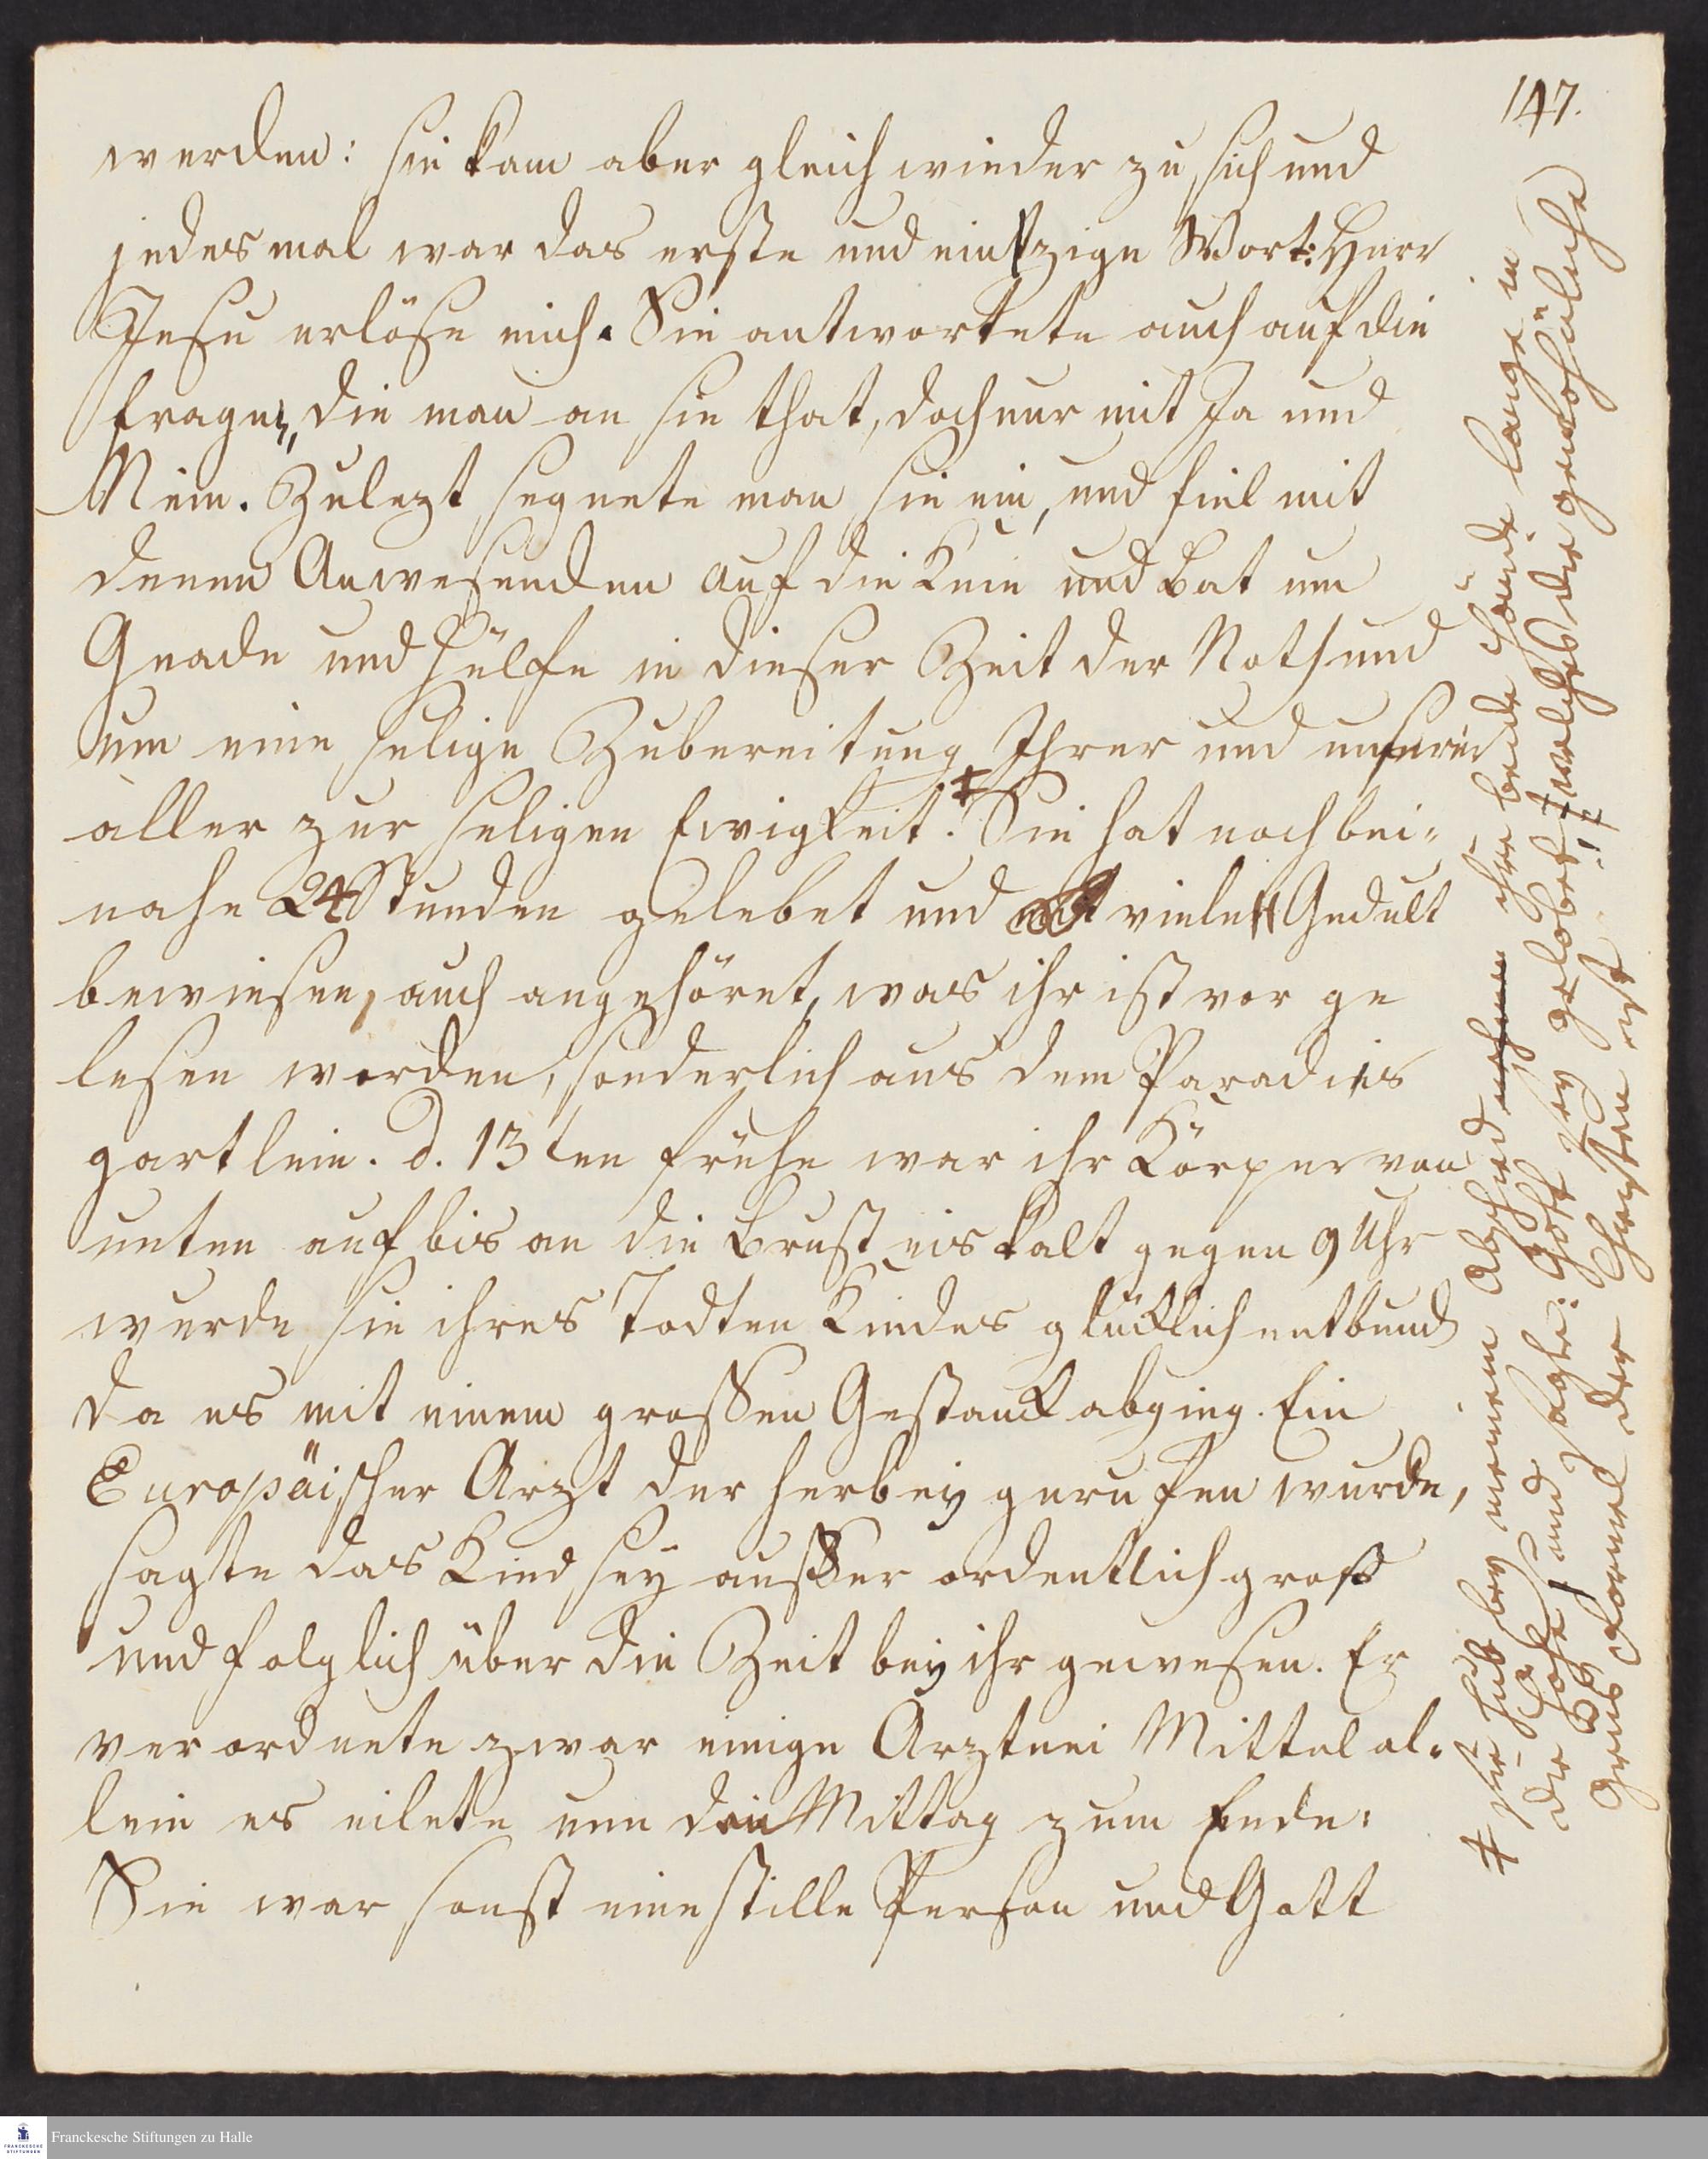 147.
werden: sie kam aber gleich wieder zu sich und
jedes mal war das erste und einzige Wort: Herr
Jesu erlöse mich. Sie antwortete auch auf die
fragen, die man an sie that, doch nur mit Ja und
Nein. Zulezt segnete man sie ein, und fiel mit
denen Anwesenden auf die Knie und bat um
Gnade und Hülfe in dieser Zeit der Noth und
um eine selige Zubereitung Ihrer und unserer
aller zur seligen Ewigkeit. ‡ Sie hat noch bei-
nahe 24 Stunden gelebet und viele Gedult
bewiesen, auch angehöret, was ihr ist vor ge
lesen worden, sonderlich aus dem Paradies
gartlein. d. 13ten frühe war ihr Körper von
unten auf bis an die Brust eiskalt gegen 9 Uhr
wurde sie ihres Todten Kindes glücklich entbund
da es mit einem grossen Gestanck abging. Ein
Europäischer Arzt der herbey gerufen wurde,
sagte das Kind sey ausser ordentlich groß
und folglich über die Zeit bey ihr gewesen. Er
verordnete zwar einige Arztnei Mittel al-
lein es eilete um den Mittag zum Ende:
Sie war sonst eine stille Person und Gott
‡ sie hub bey meinem Abschied nehmen ihre beide Hände lange in
die Höhe und sagte: Gott sey gelobet ‡ welches der gewöhnliche
Grus Formel der Christen ist.! ‡
Franckesche Stiftungen zu Halle